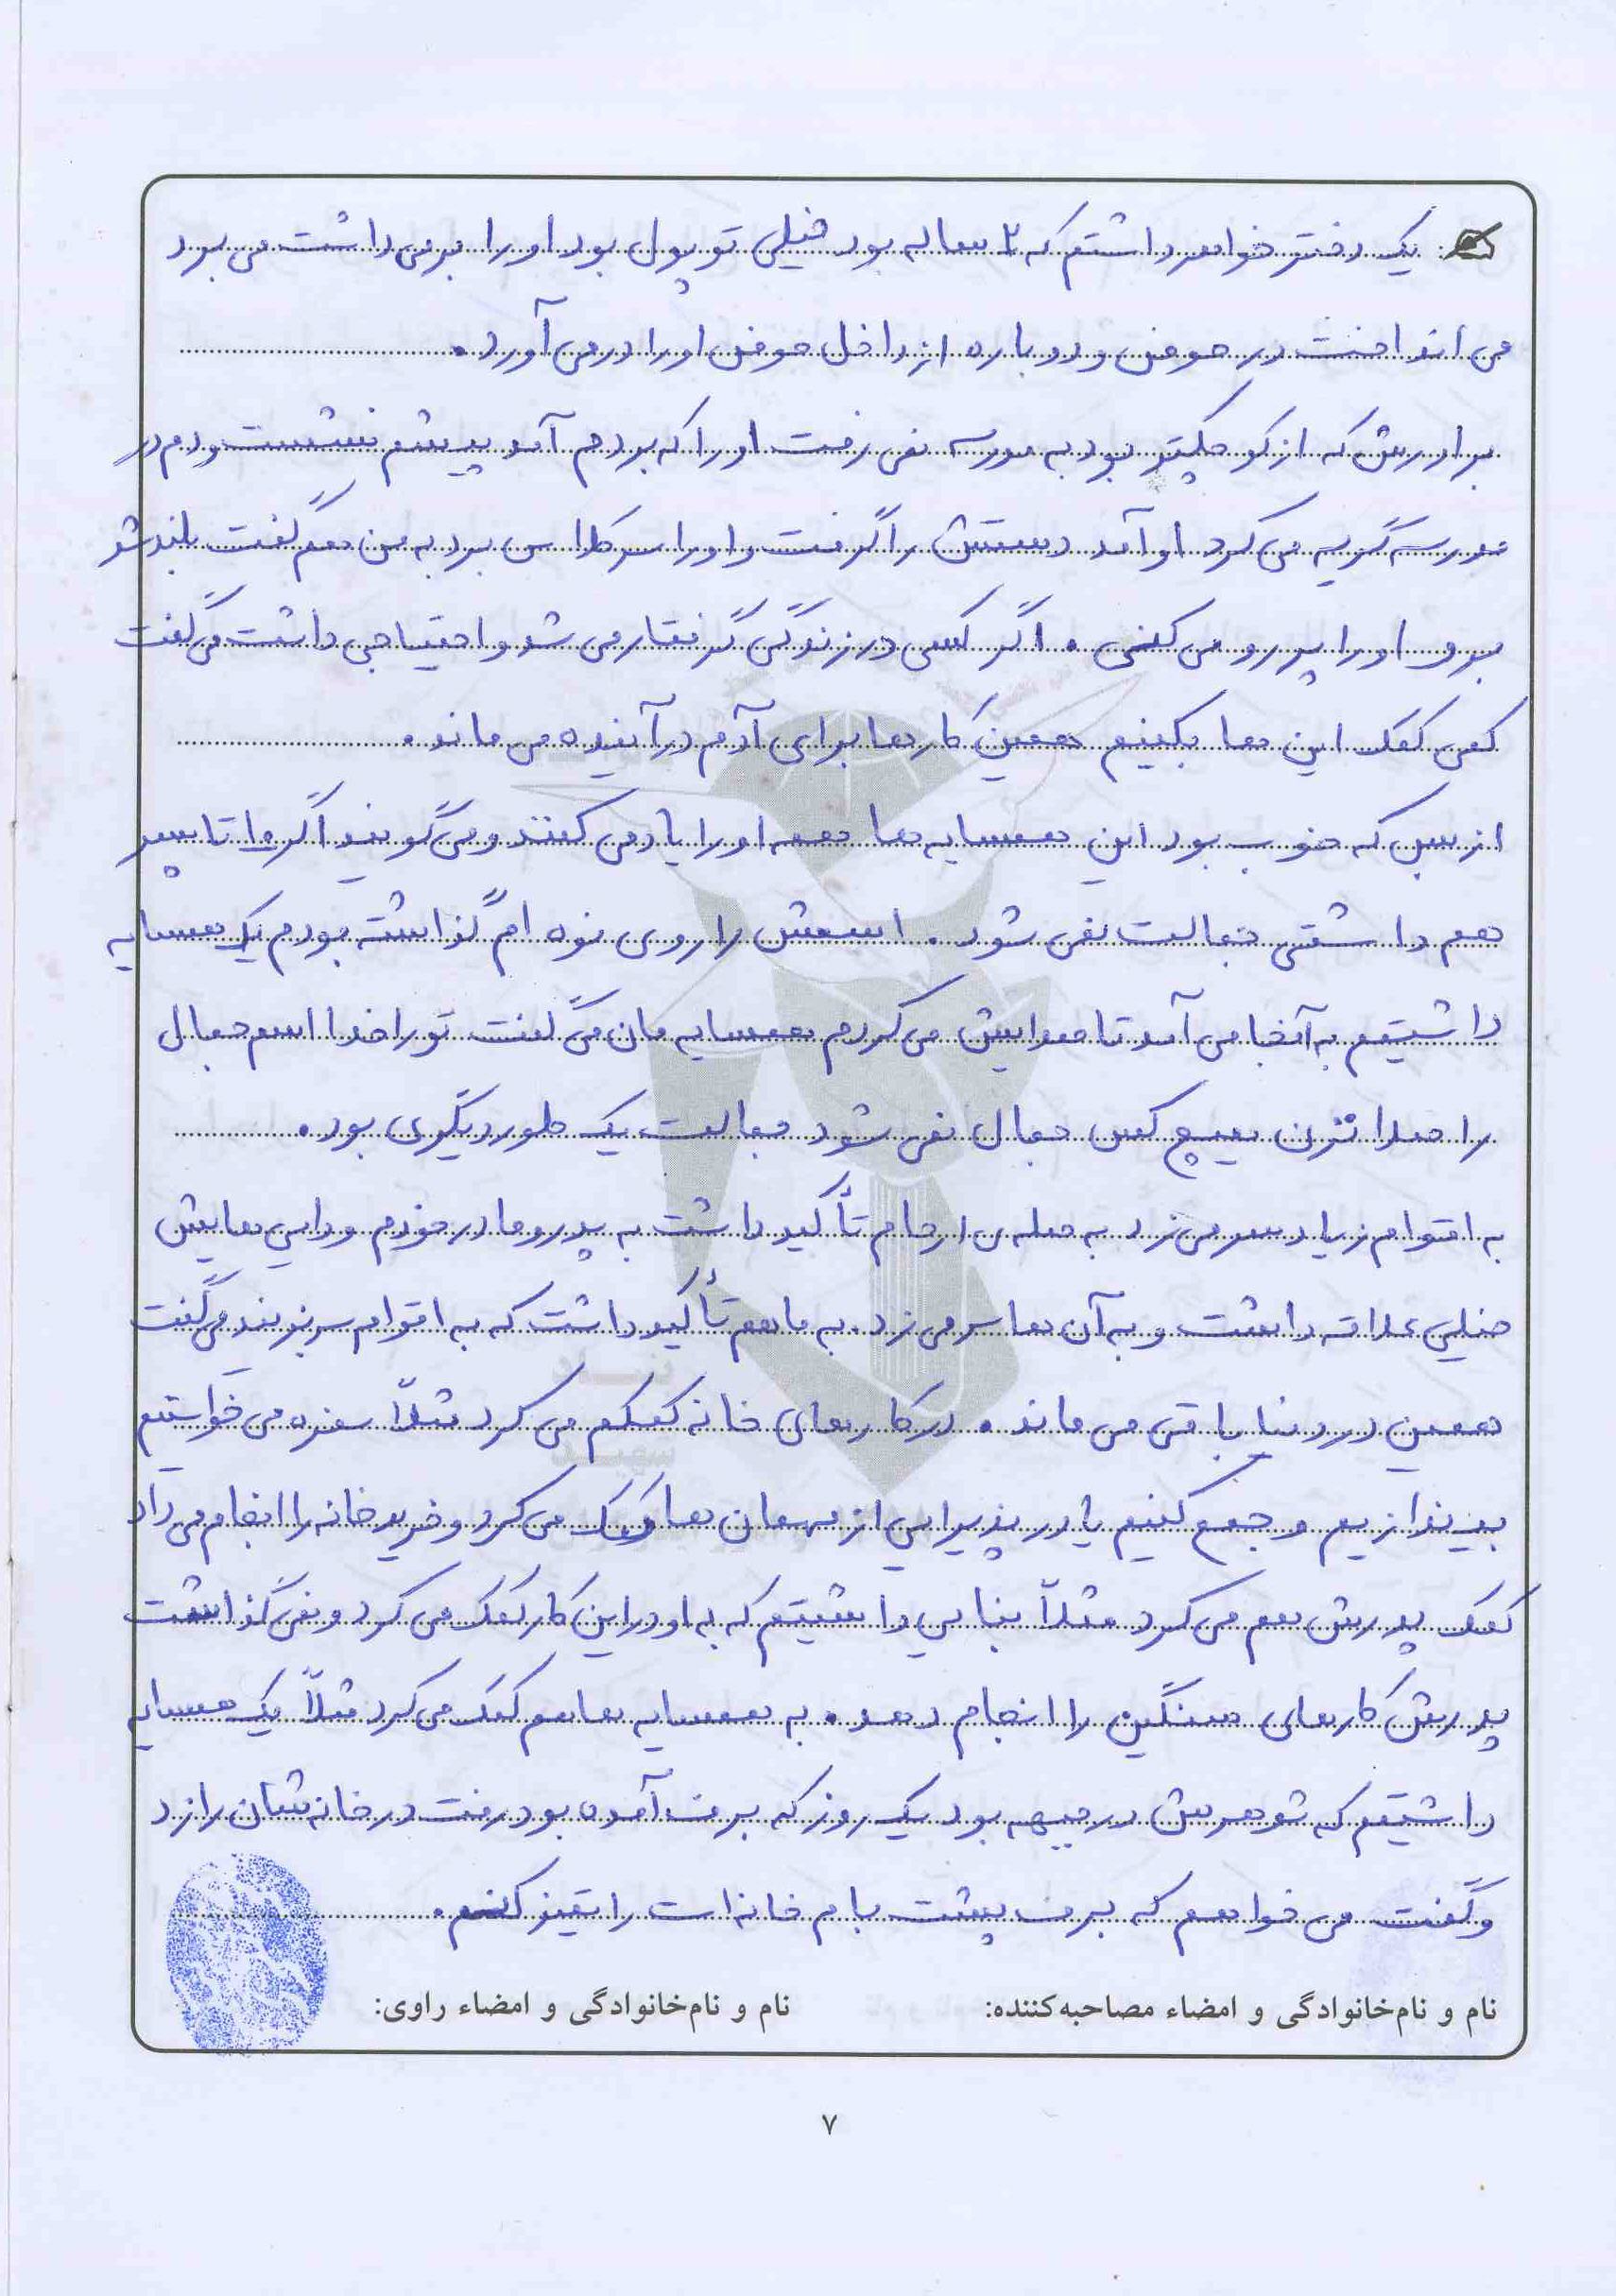 یک دختر خواهر داشتم که ۲ ساله بود خیلی توپول بود او را برمی داشت می برد
می انداخت در حوض و دوباره از داخل حوض او را در می آورد.
برادرش که از کوچکتر بود به مدرسه نمی رفت او را که بردم آمد پیشم نشست و دم در
مدرسه گریه می کرد او آمد دستش را گرفت و او را سر کلاس برد به من هم گفت بلند شو
برو او را پررو می کنی. اگر کسی در زندگی گرفتار می شد و احتیاجی داشت می گفت
کمی کمک این ها بکنیم همین کارها برای آدم در آینده می ماند.
از بس که خوب بود این همسایه ها همه او را یاد می کنند و می گویند اگر ۱۰ تا پسر
هم داشتی جمالت نمی شود. اسمش را روی نوه ام گذاشته بودم یک همسایه
داشتیم به آنجا می آمد تا صدایش می کردم همسایه مان می گفت تو را خدا اسم جمال
را صدا نزن هیچ کس جمال نمی شود جمالت یک طور دیگری بود.
به اقوام زیاد سر می زد به صله ی ارحام تأکید داشت به پدر و مادر خودم و دایی هایش
خیلی علاقه داشت و به آن ها سر می زد. به ما هم تأکید داشت که به اقوام سر بزنید می گفت
همین در دنیا باقی می ماند. در کارهای خانه کمکم می کرد مثلاً سفره می خواستیم
بیندازیم و جمع کنیم یا در پذیرایی از مهمان ها کمک می کرد و خرید خانه را انجام می داد
کمک پدرش هم می کرد مثلاً بنایی داشتیم که به او در این کار کمک می کرد و نمی گذاشت
پدرش کارهای سنگین را انجام دهد. به همسایه ها هم کمک می کرد مثلاً یک همسایه
داشتیم که شوهرش در جبهه بود یک روز که برف آمده بود رفت در خانه شان را زد
و گفت می خواهم که برف پشت بام خانه ات را تمیز کنم.
نام و نام‌خانوادگی و امضاء مصاحبه‌کننده: نام و نام‌خانوادگی و امضاء راوی:
۷